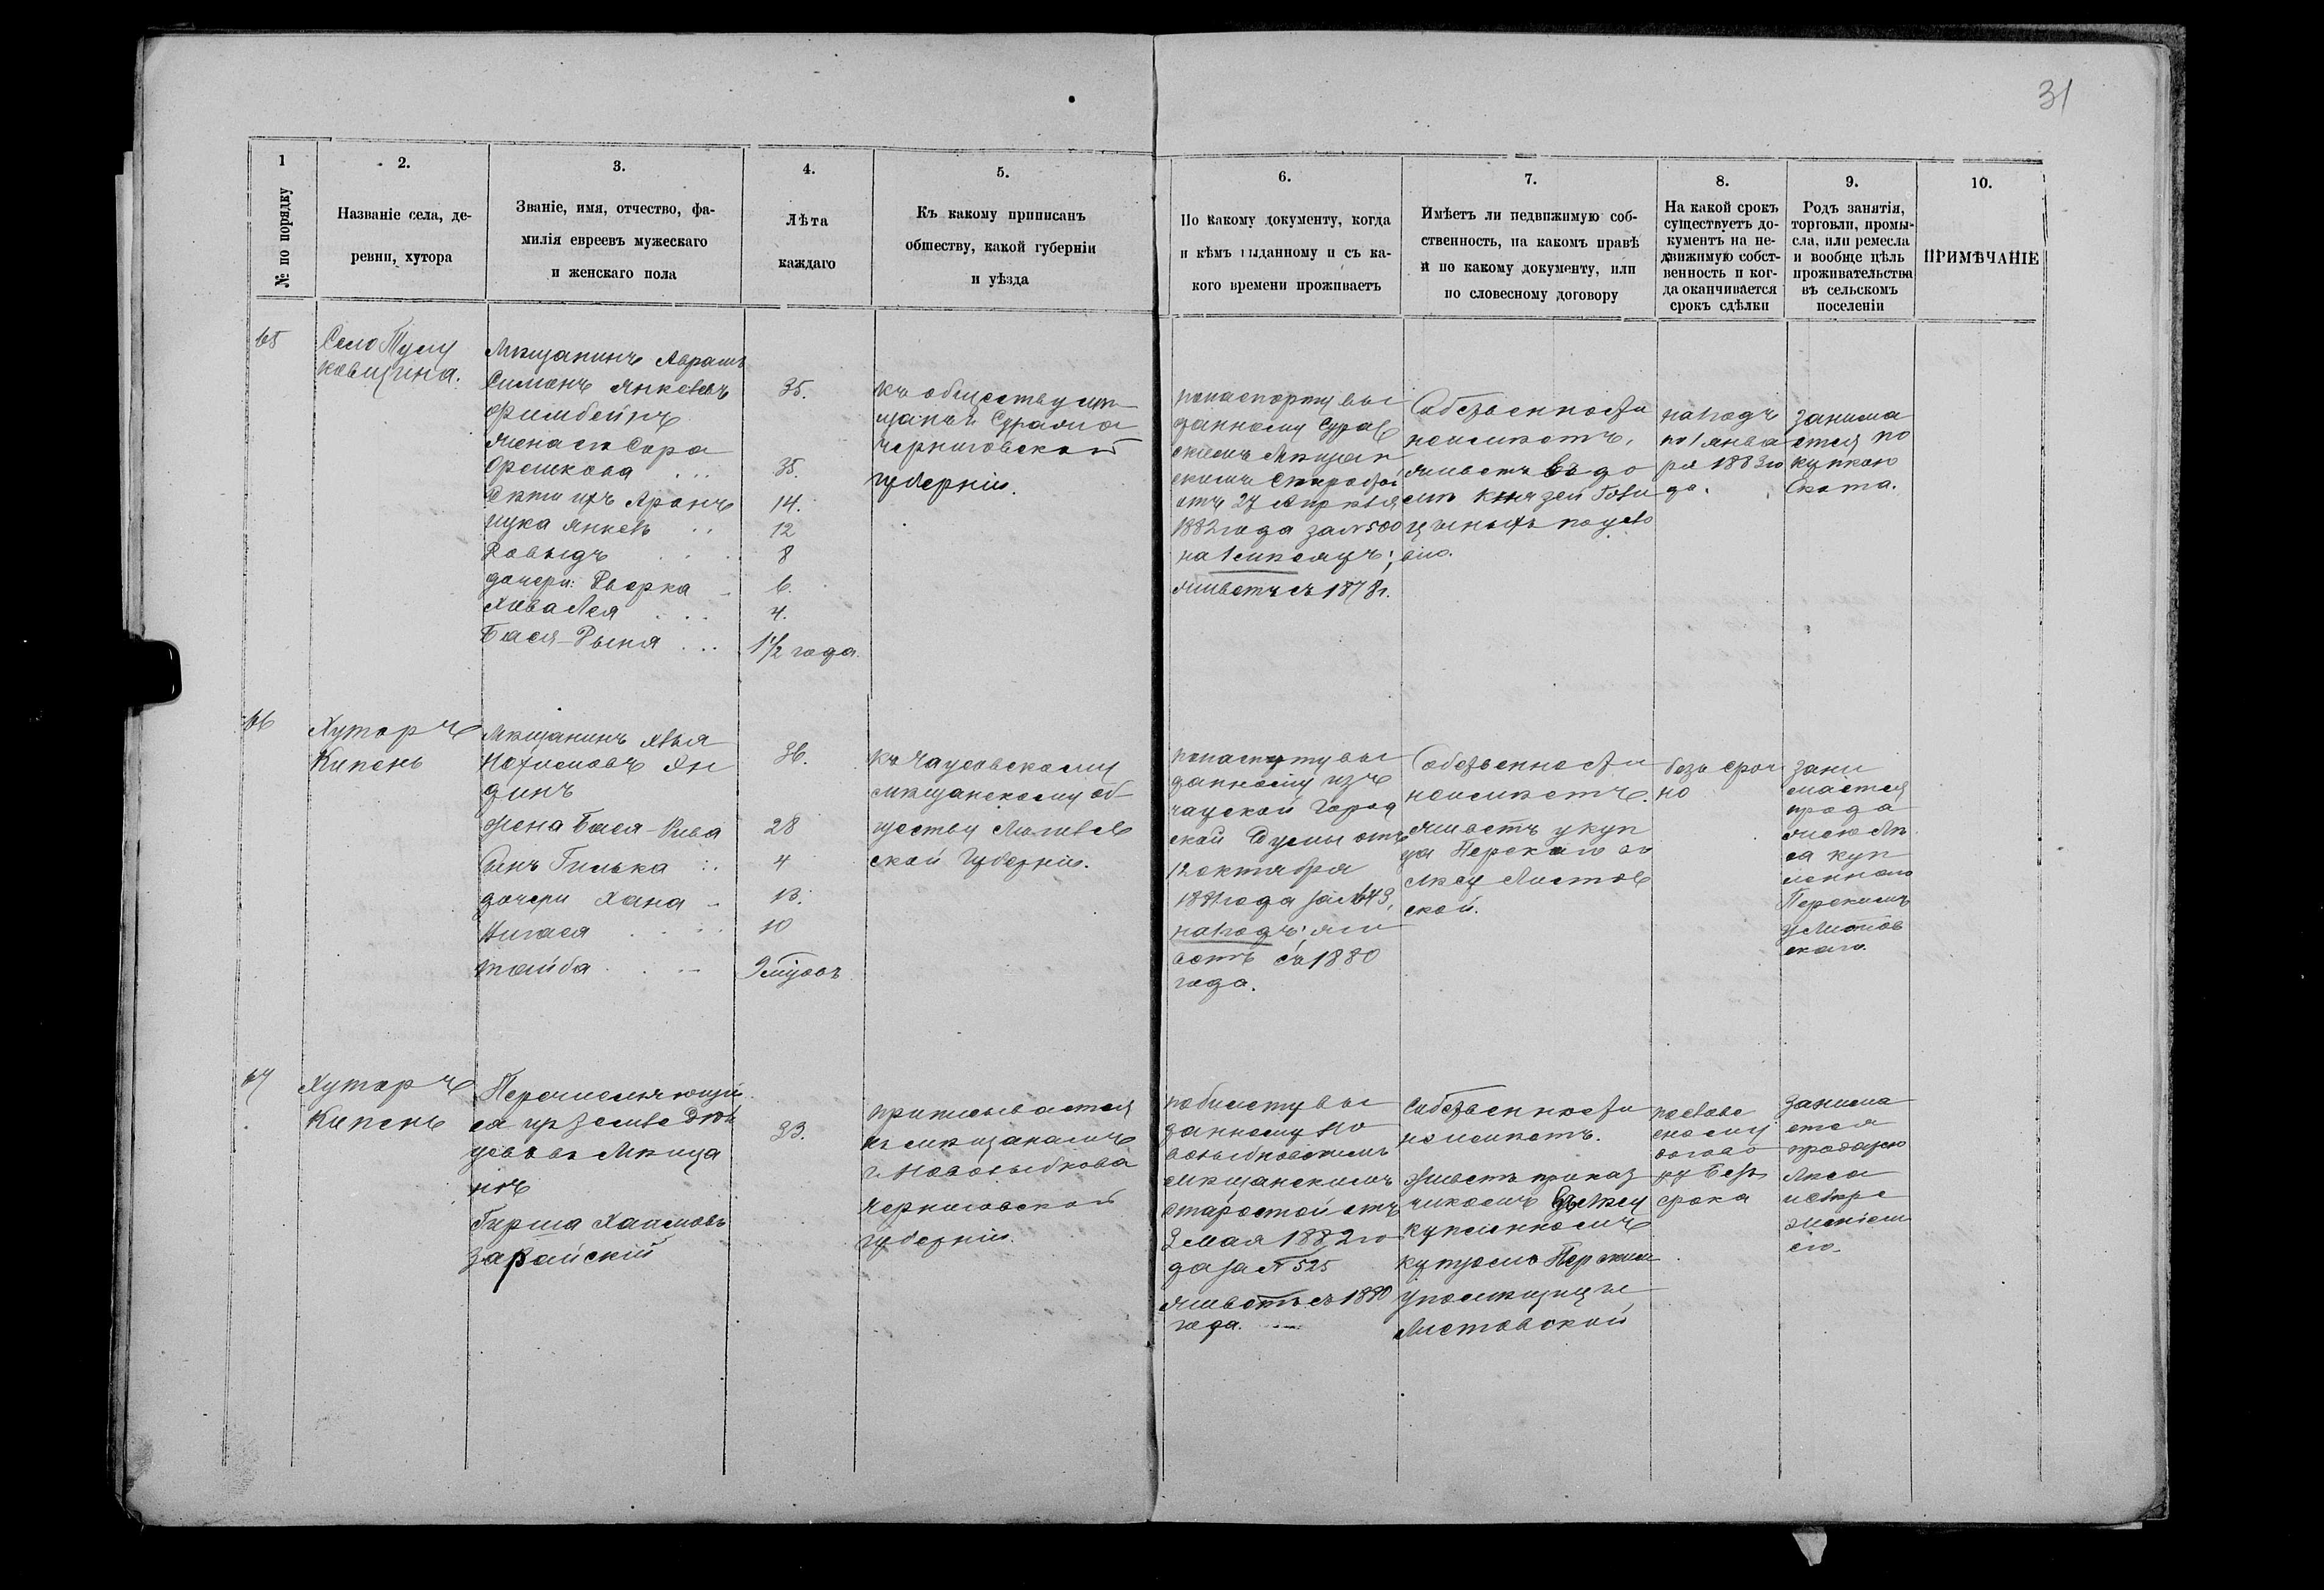 31
1
№ по порядку
2.
Названіе села, де-
ревни, хутора
3.
Званіе, имя, отчество, фа-
милія евреевъ мужескаго
и женскаго пола
4.
Лѣта
каждаго
5.
Къ какому приписанъ
обществу, какой губерніи
и уѣзда
6.
По какому документу, когда
и кѣмъ выданному и съ ка-
кого времени проживаетъ
7.
Имѣетъ ли недвижимую соб-
ственность, на какомъ правѣ
и по какому документу, или
по словесному договору
8.
На какой срокъ
существуетъ до-
кументъ на не-
движимую собст-
венность и ког-
да оканчивается
срокъ сдѣлки
9.
Родъ занятія,
торговли, промы-
сла, или ремесла
и вообще цѣль
проживательства
въ сельскомъ
поселеніи
10.
ПРИМѢЧАНІЕ
65
Село
ковщина.
Мѣщанинъ Абрамъ
Симонъ Янкелевъ
жена его Сора
35.
35.
Дѣти ихъ Аронъ
14.
Янкель
12
Давыдъ
8
дочери: Дверка
6.
Хава Лея
4.
Бася-
1½ года
къ обществу мѣ
щанъ г. Суража
Черниговской
губерніи.
попаспорту вы
данному Сураж
скимъ Мѣщан
скимъ Старостой
отъ 27 Апрѣля
1882 года за № 500
на 1 мѣсяцъ;
живетъ съ 1878 г.
Собственности
неимѣетъ,
живетъ въ до
мѣ князей Голи
цыныхъ
на годъ
по 1 янва
ря 1883 го
да.
занима
ется по
купкою
Скота.
66
Хуторъ
Кипень
Мѣщанинъ
динъ
36.
жена Бася-Рива
28
сынъ Гилька
4
дочери Хана
13.
10
9 мѣсяцовъ
къ Чаусовскому
мѣщанскому об
ществу Могилев
ской Губерніи.
попаспорту вы
данному изъ
чауской Город
ской Думы отъ
12 октября
1881 года за № 643,
на годъ; жи
ветъ съ 1880
года.
Собственности
неимѣетъ.
живетъ у куп
ца
лѣсу Листов
ской.
безъ сроч
но
зани
мается
прода
жею лѣ
са куп
леннаго
у Листов
скаго.
67
Хуторъ
Кипень
Перечисляющій
ся изъ Землевладѣ
цевъ въ Мѣща
не
Гирша Хаимовъ
Зарайскій
33.
приписывается
къ мѣщанамъ
г. Новозыбкова
Черниговской
губерніи.
по билету вы
данному Но
возыбковскимъ
мѣщанскимъ
старостой отъ
3 мая 1882 го
да за № 525
живетъ съ 1880
года.
Собственности
неимѣетъ.
живетъ приказ
чикомъ въ лѣсу
купленномъ
купцомъ
у помѣщицы
Листовской
посло́ве
сному
догово
ру безъ
срока
занима
ется
продажею
лѣса